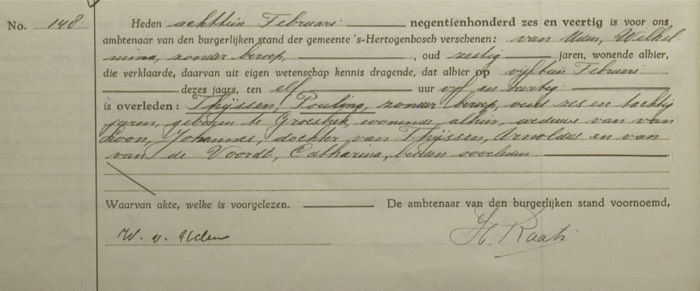 No. 148 Heden achttien Februari negentienhonderd zes en veertig is voor ons,
ambtenaar van den burgerlijken stand der gemeente 's-Hertogenbosch verschenen: van Uden, Wilhel
mina, zonder beroep, , oud zestig jaren, wonende alhier,
die verklaarde, daarvan uit eigen wetenschap kennis dragende, dat alhier op vijftien Februari
dezes jaars, ten elf uur vijf en veertig
is overleden: Thijssen, Paulina, zonder beroep, oud zes en tachtig
jaren, geboren te Groesbeek, wonende alhier, weduwe van van
Loon, Johannes, dochter van Thijssen, Arnoldus en van
van de Voordt, Catharina, beiden overleden
Waarvan akte, welke is voorgelezen. De ambtenaar van den burgerlijken stand voornoemd,
W. v. Uden